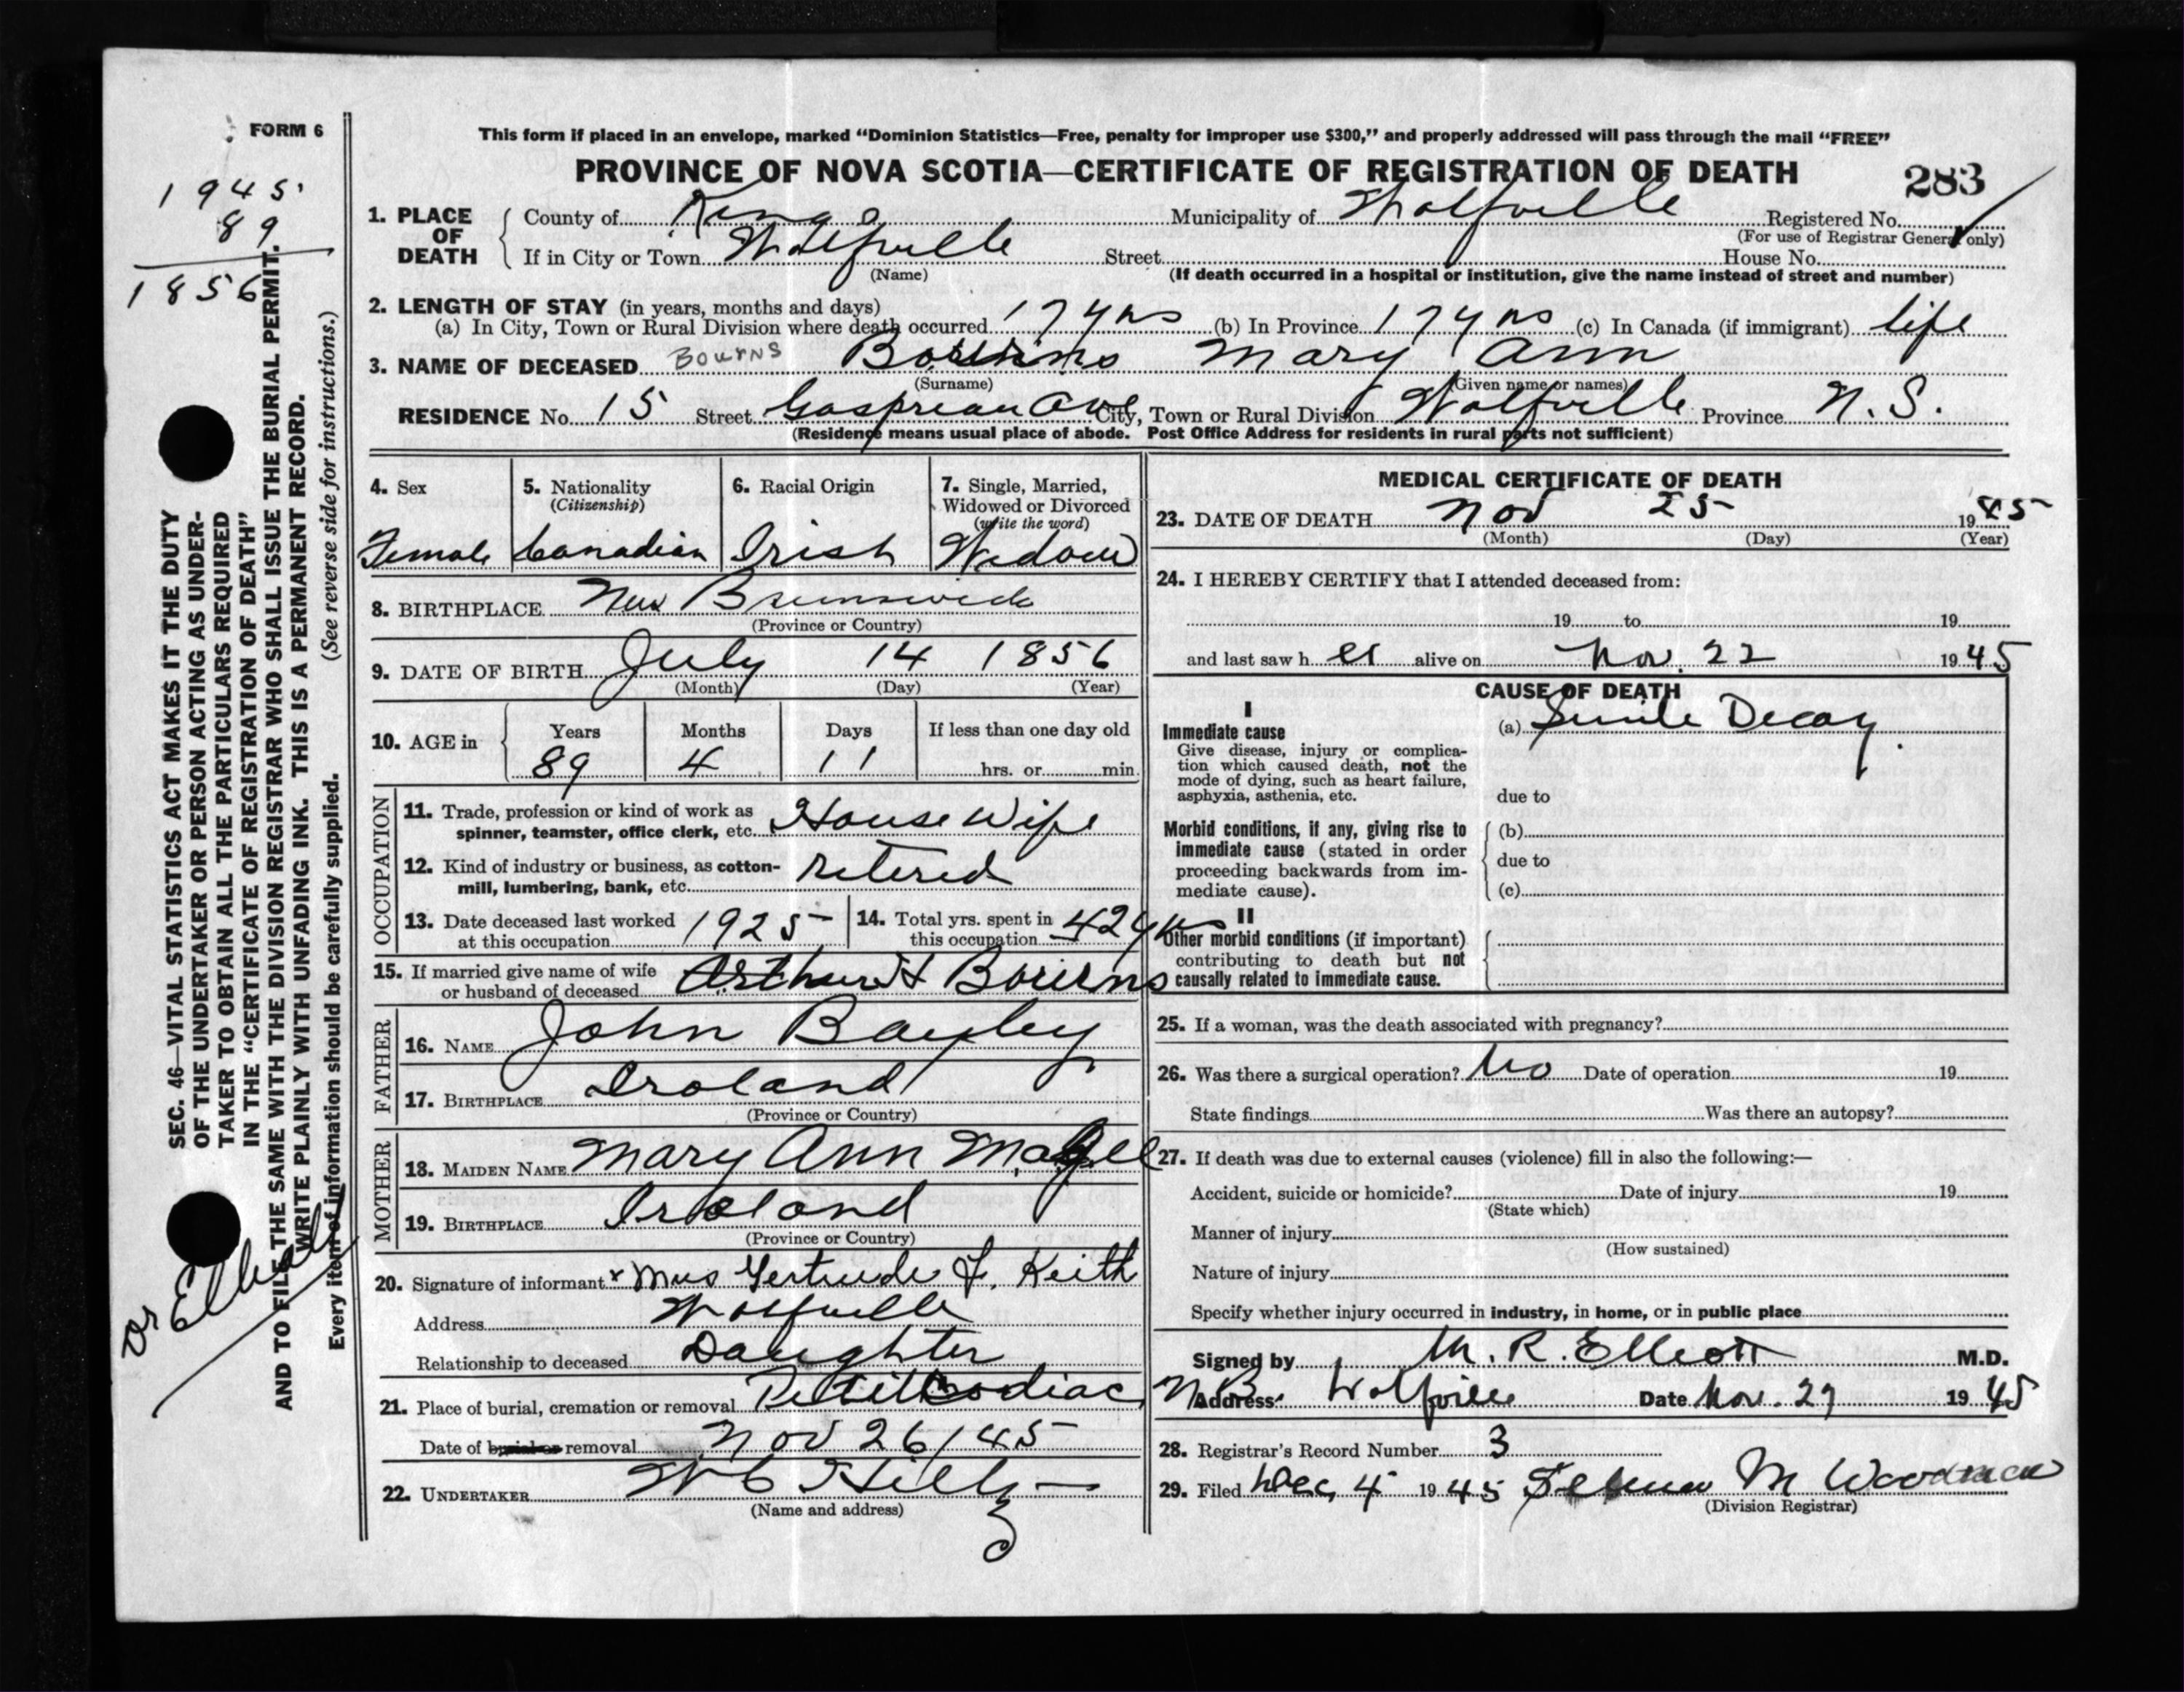 FORM 6
This form if placed in an envelope, marked “Dominion Statistics—Free, penalty for improper use $300,” and properly addressed will pass through the mail “FREE”
PROVINCE OF NOVA SCOTIA—CERTIFICATE OF REGISTRATION OF DEATH
283
1945
89
1856
1. PLACE OF DEATH
County of Kings Municipality of Wolfville Registered No.
(For use of Registrar General only)
If in City or Town Wolfville Street House No.
(Name) (If death occurred in a hospital or institution, give the name instead of street and number)
2. LENGTH OF STAY (in years, months and days)
(a) In City, Town or Rural Division where death occurred 17 yrs (b) In Province 17 yrs (c) In Canada (if immigrant) life
3. NAME OF DECEASED BOURNS Bourns Mary Ann
(Surname) (Given name or names)
RESIDENCE No. 15 Street Gasprean Ave City, Town or Rural Division Wolfville Province N. S.
(Residence means usual place of abode. Post Office Address for residents in rural parts not sufficient)
4. Sex
Female
5. Nationality
(Citizenship)
Canadian
6. Racial Origin
Irish
7. Single, Married,
Widowed or Divorced
(write the word)
Widow
8. BIRTHPLACE New Brunswick
(Province or Country)
9. DATE OF BIRTH July 14 1856
(Month) (Day) (Year)
10. AGE in
Years Months Days If less than one day old
89 4 11 hrs. or min.
OCCUPATION
11. Trade, profession or kind of work as
spinner, teamster, office clerk, etc. House Wife
12. Kind of industry or business, as cotton-
mill, lumbering, bank, etc. retired
13. Date deceased last worked
at this occupation 1925
14. Total yrs. spent in
this occupation 42 yrs
15. If married give name of wife
or husband of deceased Arthur H Bourns
FATHER
16. NAME John Bayley
17. BIRTHPLACE Iroland
(Province or Country)
MOTHER
18. MAIDEN NAME Mary Ann
19. BIRTHPLACE Iroland
(Province or Country)
20. Signature of informant x Mrs Gertrude F. Keith
Address Wolfville
Relationship to deceased Daughter
21. Place of burial, cremation or removal Petitcodiac N B.
Date of burial or removal Nov 26/45
22. UNDERTAKER W C
(Name and address)
MEDICAL CERTIFICATE OF DEATH
23. DATE OF DEATH Nov 25 1945
(Month) (Day) (Year)
24. I HEREBY CERTIFY that I attended deceased from:
19 to 19
and last saw h er alive on Nov. 22 1945
CAUSE OF DEATH
I
Immediate cause
Give disease, injury or complica-
tion which caused death, not the
mode of dying, such as heart failure,
asphyxia, asthenia, etc.
(a) Senile Decay.
due to
Morbid conditions, if any, giving rise to
immediate cause (stated in order
proceeding backwards from im-
mediate cause).
(b)
due to
(c)
II
Other morbid conditions (if important)
contributing to death but not
causally related to immediate cause.
25. If a woman, was the death associated with pregnancy?
26. Was there a surgical operation? No Date of operation 19
State findings Was there an autopsy?
27. If death was due to external causes (violence) fill in also the following:—
Accident, suicide or homicide? Date of injury 19
(State which)
Manner of injury
(How sustained)
Nature of injury
Specify whether injury occurred in industry, in home, or in public place
Signed by M. R. Elliott M.D.
Address Wolfville Date Nov. 27 1945
28. Registrar's Record Number 3
29. Filed Dec 4 1945 M Woodman
(Division Registrar)
SEC. 46—VITAL STATISTICS ACT MAKES IT THE DUTY
OF THE UNDERTAKER OR PERSON ACTING AS UNDER-
TAKER TO OBTAIN ALL THE PARTICULARS REQUIRED
IN THE “CERTIFICATE OF REGISTRATION OF DEATH”
AND TO FILE THE SAME WITH THE DIVISION REGISTRAR WHO SHALL ISSUE THE BURIAL PERMIT.
WRITE PLAINLY WITH UNFADING INK. THIS IS A PERMANENT RECORD.
Every item of information should be carefully supplied. (See reverse side for instructions.)
Dr Elliott